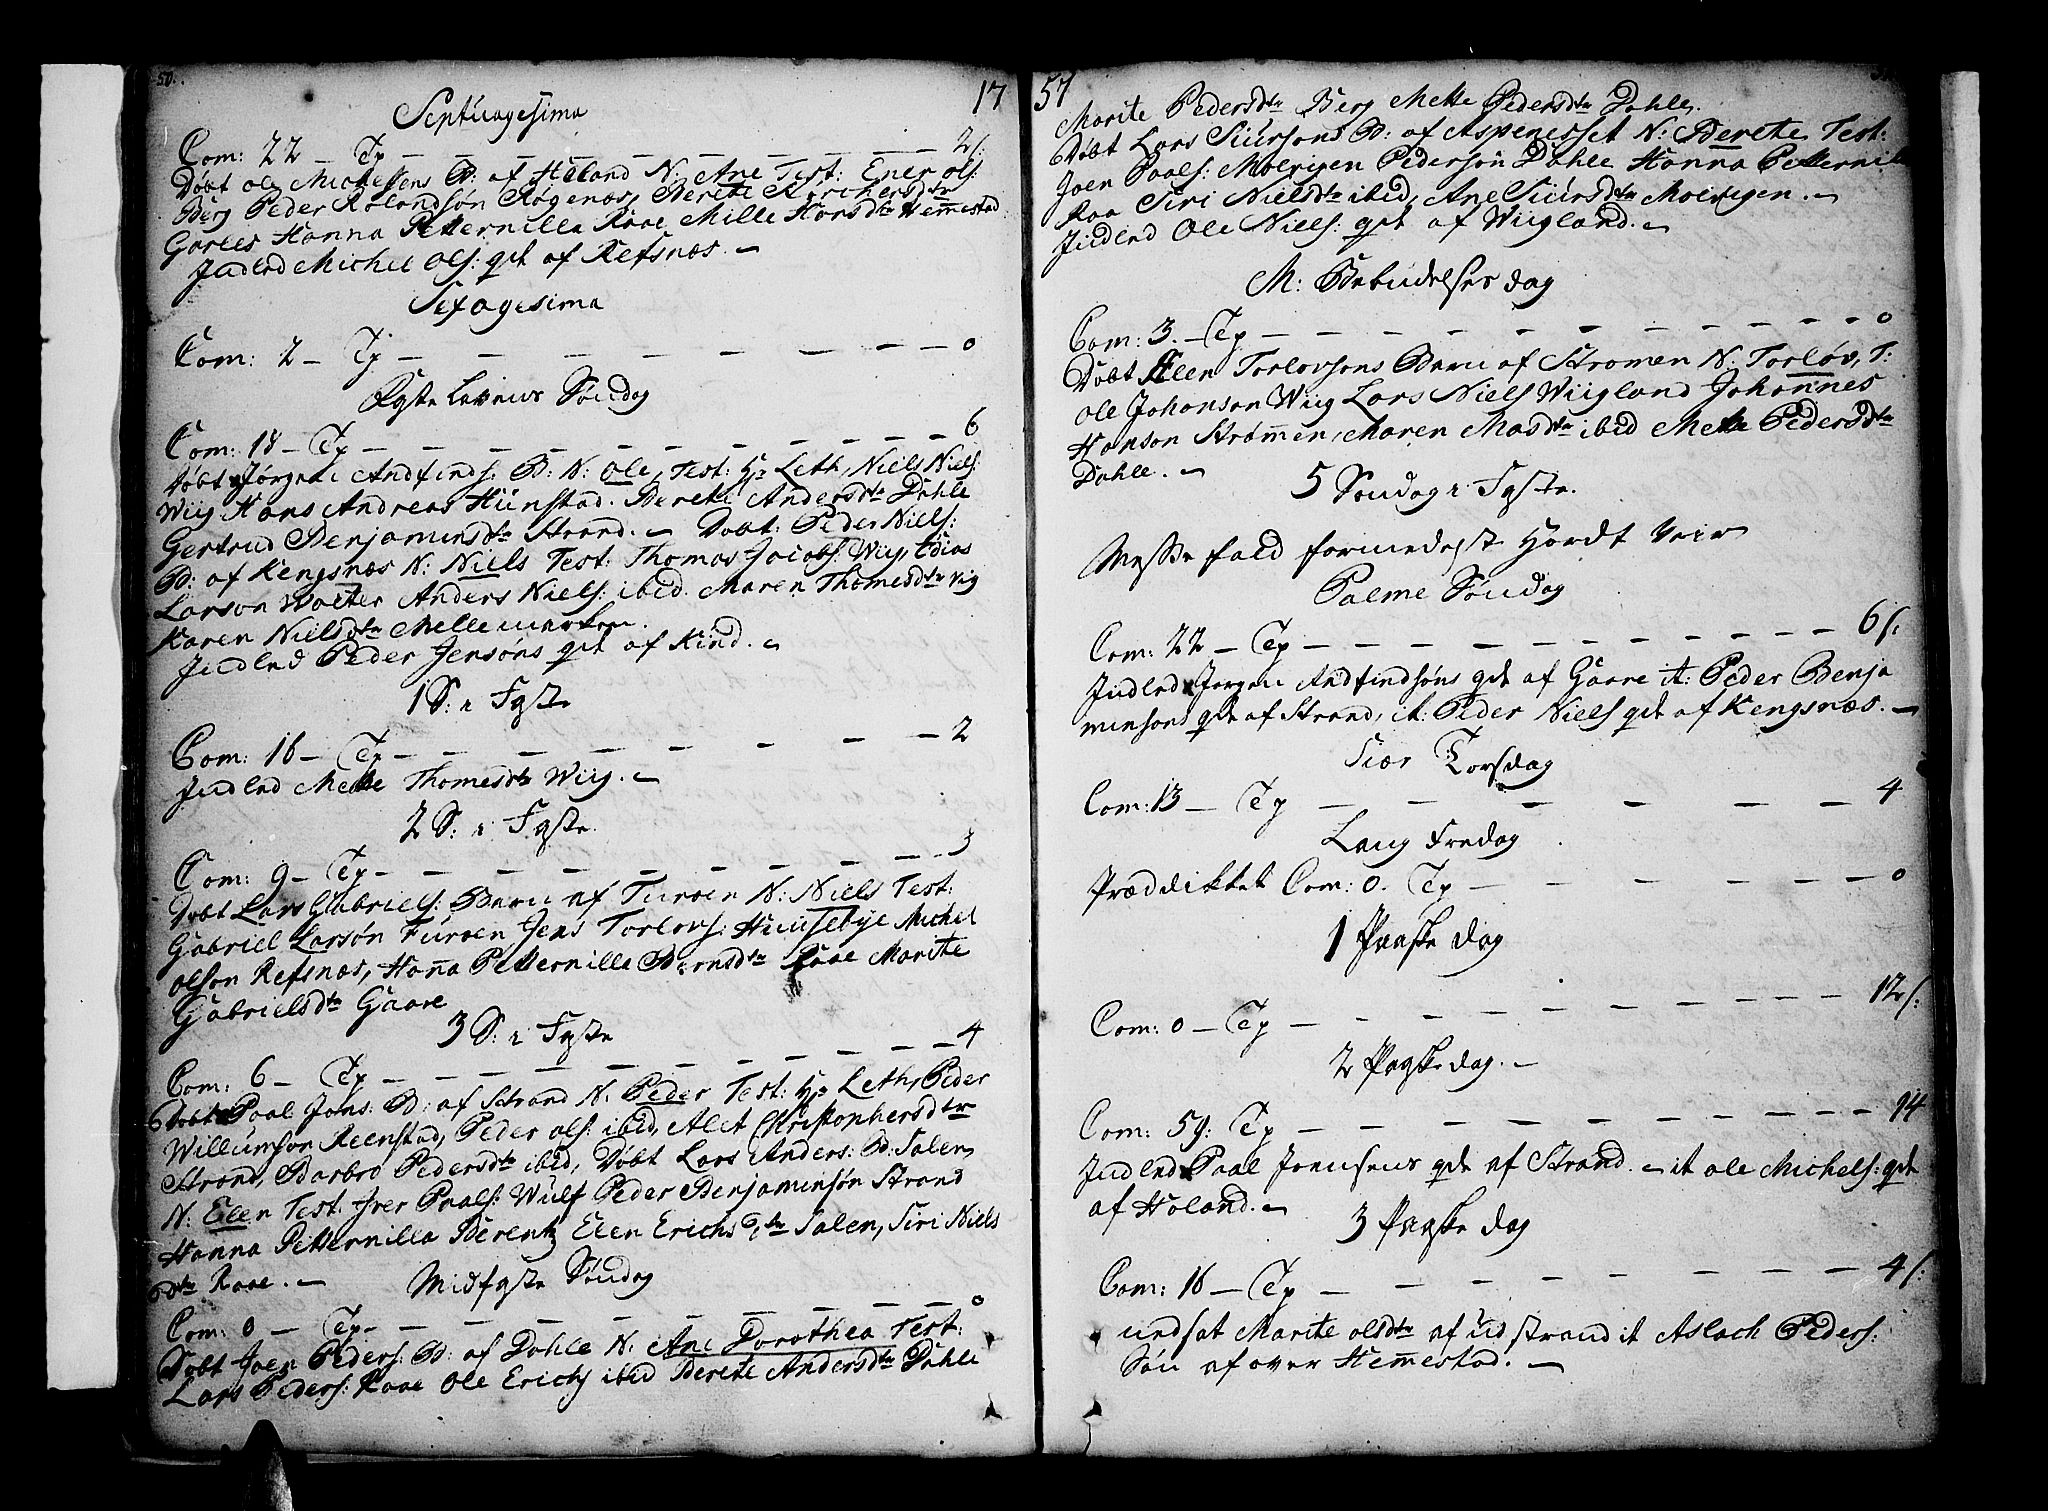 50.
17
Septuagesima
Com: 22 — Tp — — — — — — 2 s:
Døbt Ole Michelsens B: af Holand N: Ane Test: Ener Ols:
Berg Peder Rolandsøn Røgenæs, Berete
Gaates Hanna Petternilla Raae Mille Hansdtr Hemmestad
Indled Michel Ols: qde af Refsnæs. —
Sexagesima
Com: 2 — Tp — — — — — — — 0
Faste Lavens Søndag
Com: 18 — Tp — — — — — — — 6
Døbt Jørgen Andfinds: B: N: Ole, Test: Hr Leth, Niels Niels:
Wiig Hans Andreas Hunstad. Berete Andersdtr Dahle
Gertrud Benjaminsdtr Strand. — Døbt: Peder Niels:
B: af Kengsnæs N: Niels Test: Thomas Jacobs: Wiig, Edias
Larson Wolter Anders Niels: ibid. Maren Thomesdtr Vig
Karen Nielsdtr Mellemarken.
Indled Peder Jensøns qde af Kind. —
1 S: i Faste
Com: 16 — Tp — — — — — — — 2
Indled Mette Thomesdtr Wiig. —
2 S: i Faste.
Com: 9 — Tp — — — — — — — 3
Døbt Lars Gabriels: Barn af Furøen N: Niels Test:
Gabriel Larsøn Furøen Jens Torlovs: Huusebye Michel
Olson Refsnæs, Hanna Petternilla Berntsdtr Raae Marite
Gabrielsdtr Gaare
3 S: i Faste
Com: 6 — Tp — — — — — — — 4
Døbt Paal Jons: B: af Strand N. Peder Test: Hr Leth, Peder
Willumson Reenstad, Peder Ols: ibid, Alet Christophersdtr
Strand, Barbro Pedersdtr ibid, Døbt Lars Anders: B: Salen
N: Elen Test: Iver Paals: Wulf Peder Benjaminsøn Strand
Hanna Petternilla Berentz Elen Erichsdtr Salen, Siri Niels
dtr Raae. — Midfaste Søndag
Com: 0 — Tp — — — — — — — 0
Døbt Joen Peders: B: af Dahle N: Ane Dorothea Test:
Lars Peders: Raae Ole Erichs ibid Berete Andersdtr Dahle
57
Marite Pedersdtr Berg Mette Pedersdtr Dahle.
Døbt Lars Siursons B: af Aspenesset N: Berete Test:
Joen Paals: Molvigen Pedersøn Dahle Hanna Petternil
Raa Siri Nielsdtr ibid, Ane Siursdtr Molvigen. —
Indled Ole Niels: qde af Wiigland. —
M: Bebudelses dag
Com: 3. — Tp — — — — — — — 0
Døbt Elen Torlovsons Barn af Strømen N: Torløv, T:
Ole Johanson Wiig Lars Niels Wiigland Johannes
Hanson Strømmen, Maren Masdtr ibid Mette Pedersdtr
Dahle. —
5 Søndag i Faste.
Messe fald formedelst Hordt Veir
Palme Søndag
Com: 22 — Tp — — — — — — — 6 s:
Indled Jørgen Andfindsøns qde af Gaare it: Peder Benja
minsons qde af Strand, it: Peder Niels qde af Kengsnæs. —
Siær Torsdag
Com: 13 — Tp — — — — — — 4
Lang Fredag
Præddikket Com: 0. Tp — — — — — 0
1 Paaske dag
Com: 0 — Tp — — — — — — — 12 s:
2 Paaske dag. —
Com: 59: Tp — — — — — — — 14
Indled Paal Joensens qde af Strand. — it Ole Michels: qde
af Holand. —
3 Paaske dag
Com: 16 — Tp — — — — — — — 4 s:
undsat Marite Olsdtr af Udstrand it Aslach Peders:
Søn af over Hemmestad. —